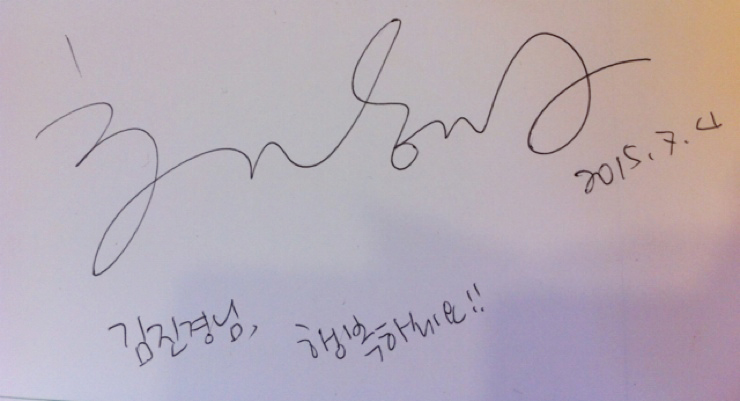 2015.7.4
김진경님, 행복하세요!!